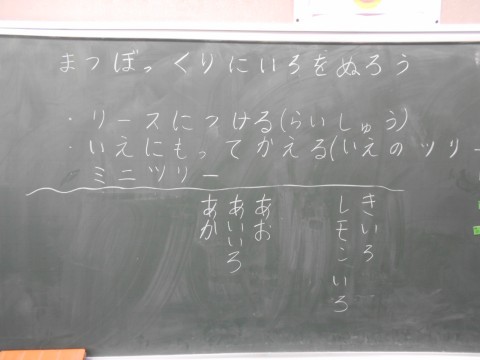 まつぼっくりにいろをぬろう
・リースにつける(らいしゅう)
・いえにもってかえる(いえのツリー
ミニツリー
きいろ
レモンいろ
あお
あいいろ
あか